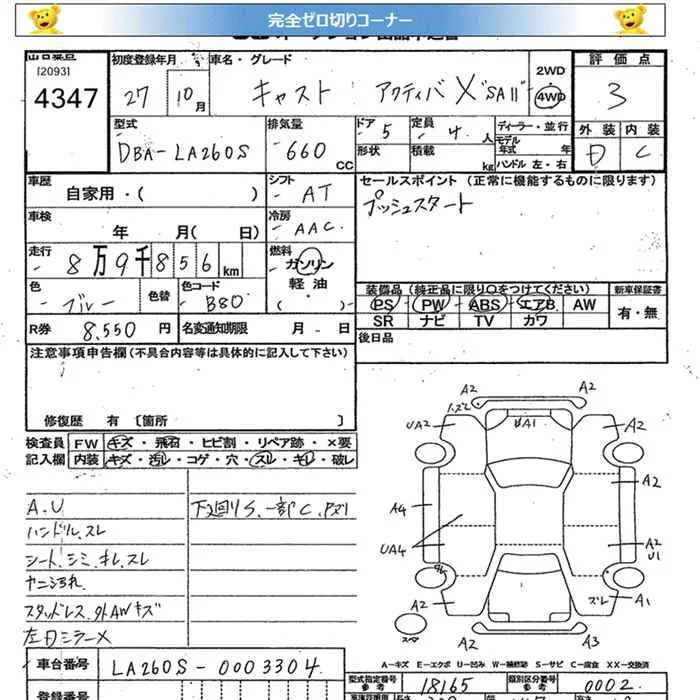 完全ゼロ切りコーナー
出品票点
[2093]
4347
初度登録年月
27 10月
車名・グレード
キャスト アクティバ X "SAII"
2WD
4WD
評価点
3
外装 内装
D C
型式
DBA-LA260S
排気量
660 CC
ドア 5
形状
定員 4 人
積載 kg
ディーラー・並行
モデル年式 年
ハンドル 左・右
車歴
自家用・( )
シフト
AT
セールスポイント (正常に機能するものに限ります)
プッシュスタート
車検
年 月( 日)
冷房
AAC
走行
8万9千856km
燃料
ガソリン
軽油
( )
色
ブルー
色替
色コード
B80
装備品 (純正品に限り○をつけてください)
PS PW ABS エアB AW
SR ナビ TV カワ
新車保証書
有・無
R券 8,550 円
名変通知期限 月 日
後日品
注意事項申告欄 (不具合内容等は具体的に記入して下さい)
修復歴 有 〔箇所 〕
検査員記入欄
FW キズ・飛石・ヒビ割・リペア跡・×要
内装 キズ・汚レ・コゲ・穴・スレ・キレ・破レ
A.U
ハンドル.スレ
シート.シミ.キレ.スレ
ヤニ汚れ
スタッドレス.外AWキズ
左ドミラー×
下廻りS.一部C.
A2
A2
UA2
UA1
A2
A2
A4
UA4
A2
U1
ズレ
A1
A2
A2
A3
スペア
A-キズ E-エクボ U-凹み W-補修跡 S-サビ C-腐食 XX-交換済
車台番号
LA260S-0003304
型式指定番号
参考
18165
類別区分番号
参考
0002